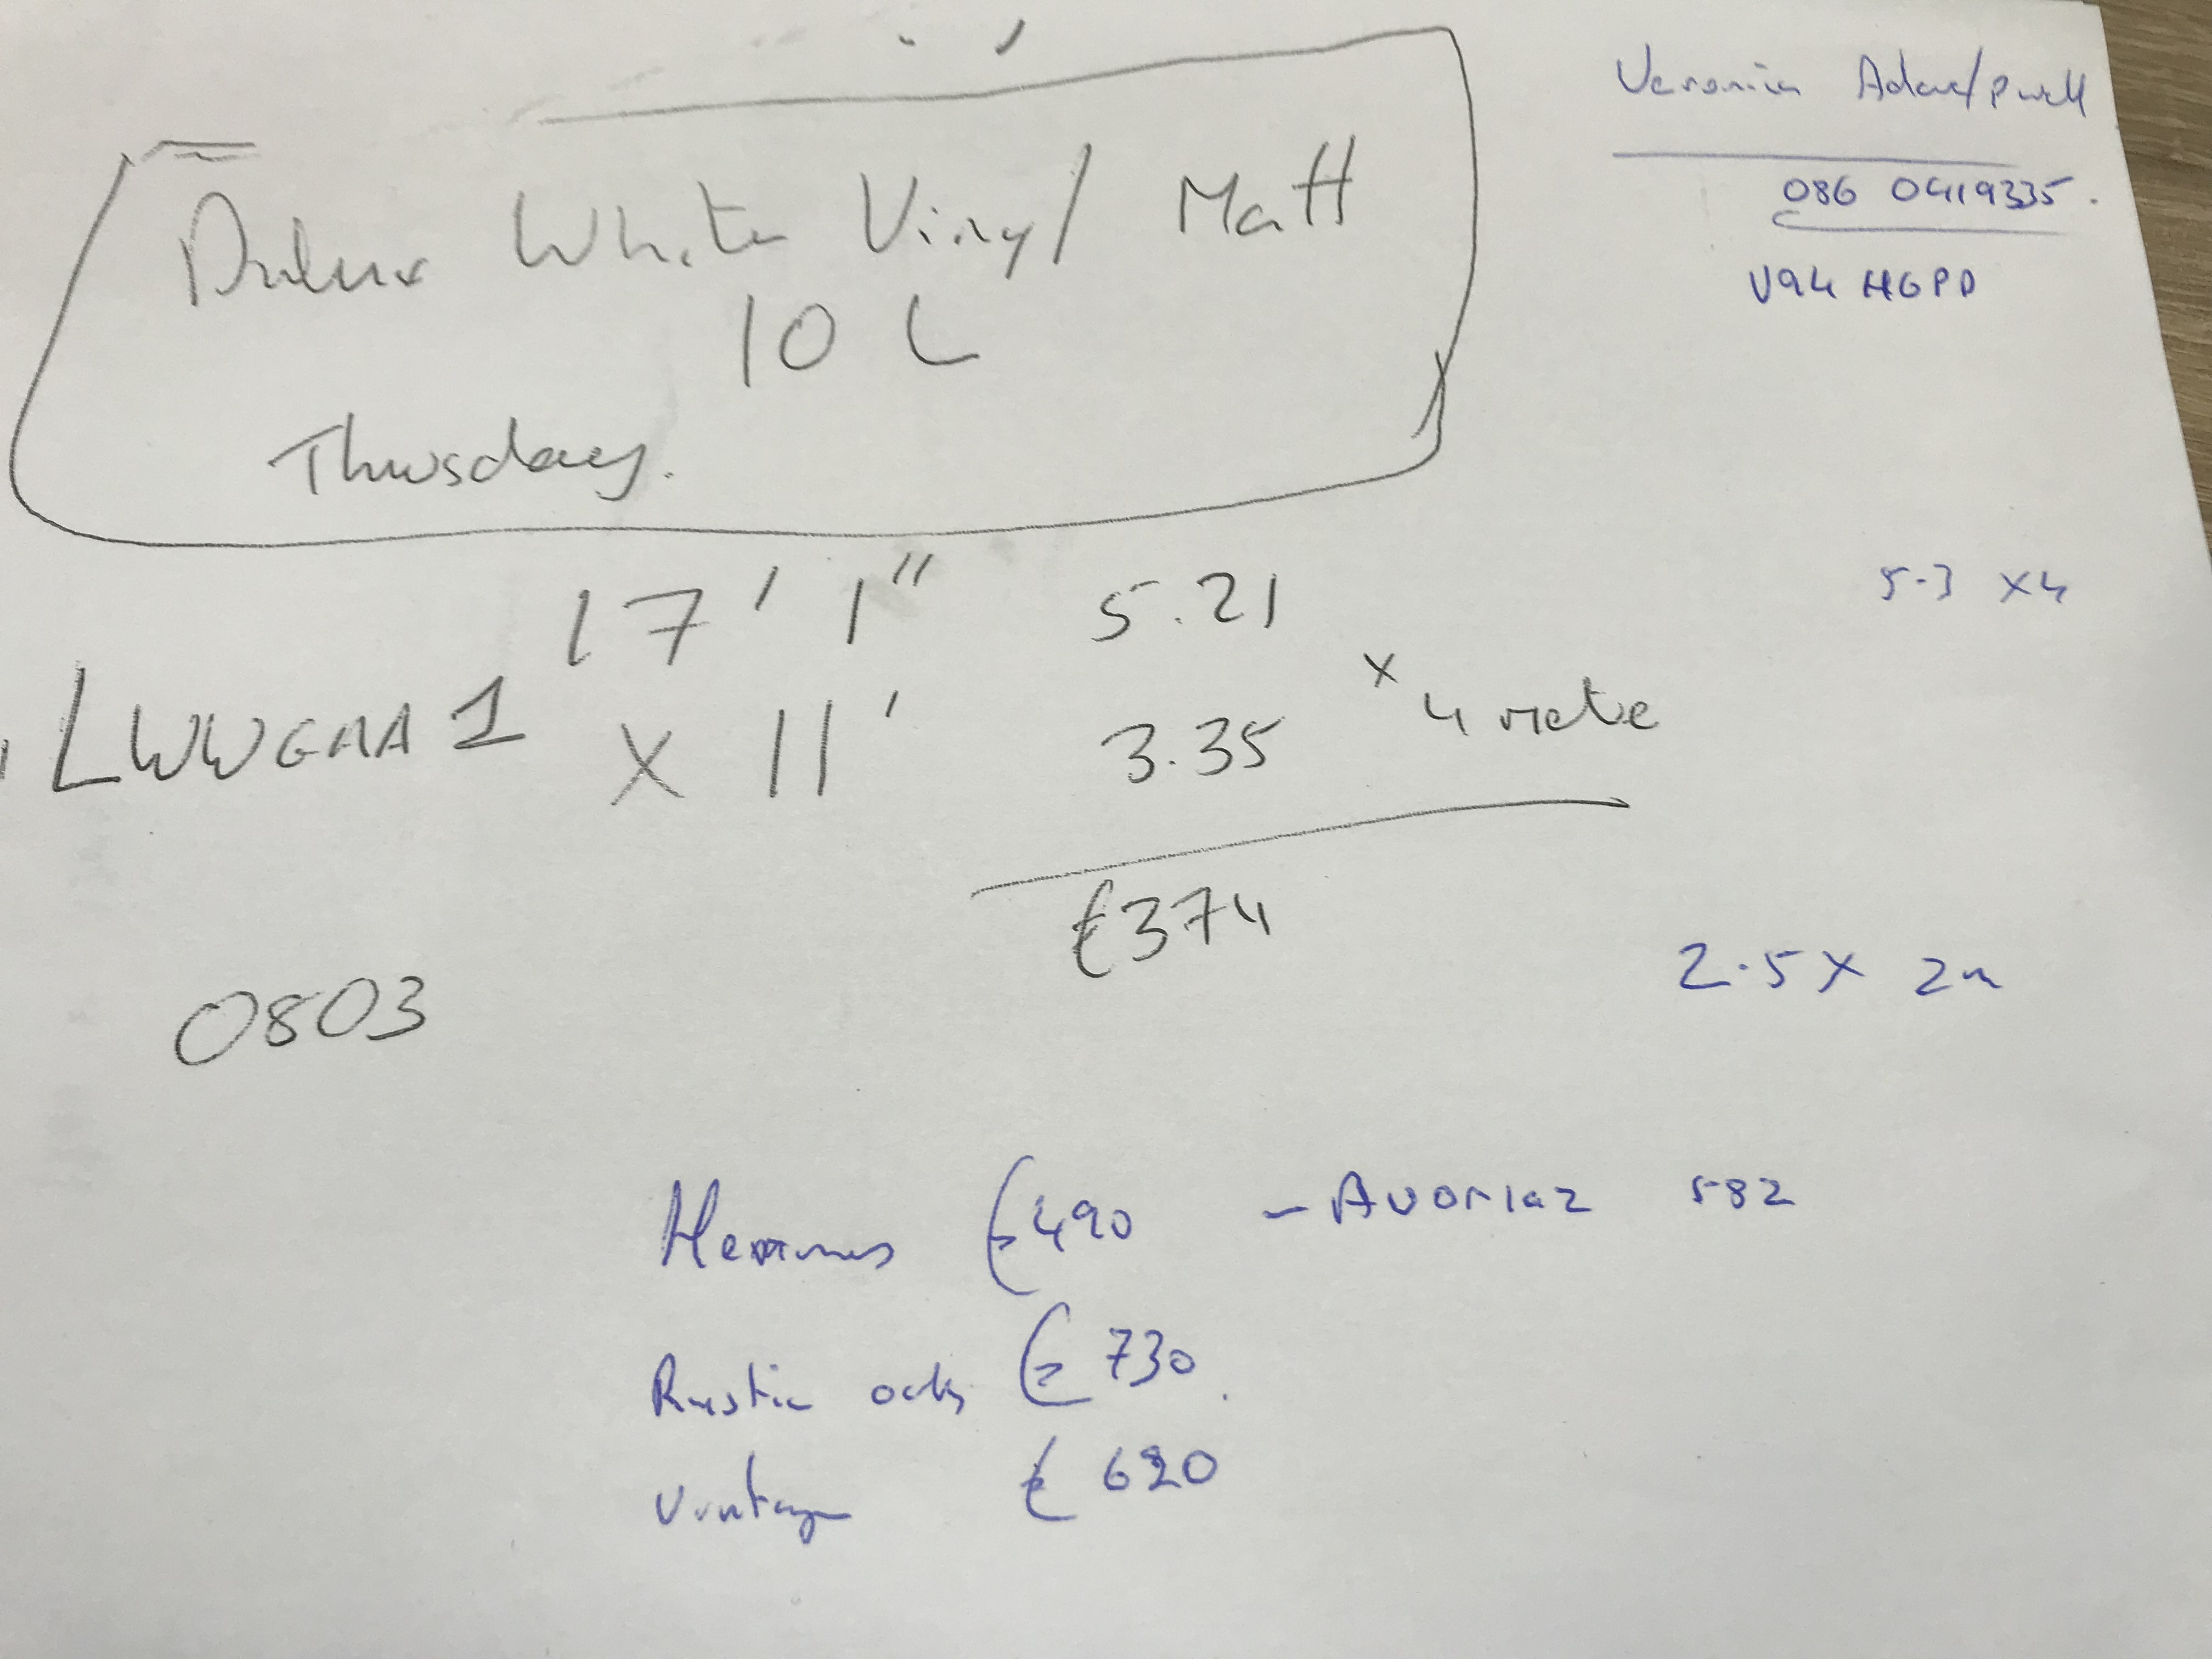 Dulux White Vinyl Matt
10 L
Thursday.
Veronica
086 0419335.
V94 H6PD
17' 1" 5.21
x 4 metre
LWWGAA1 x 11' 3.35
€374
0803
5.3 x4
2.5 x 2m
€490 - Avoriaz 582
Rustic oak €730.
Vintage €620